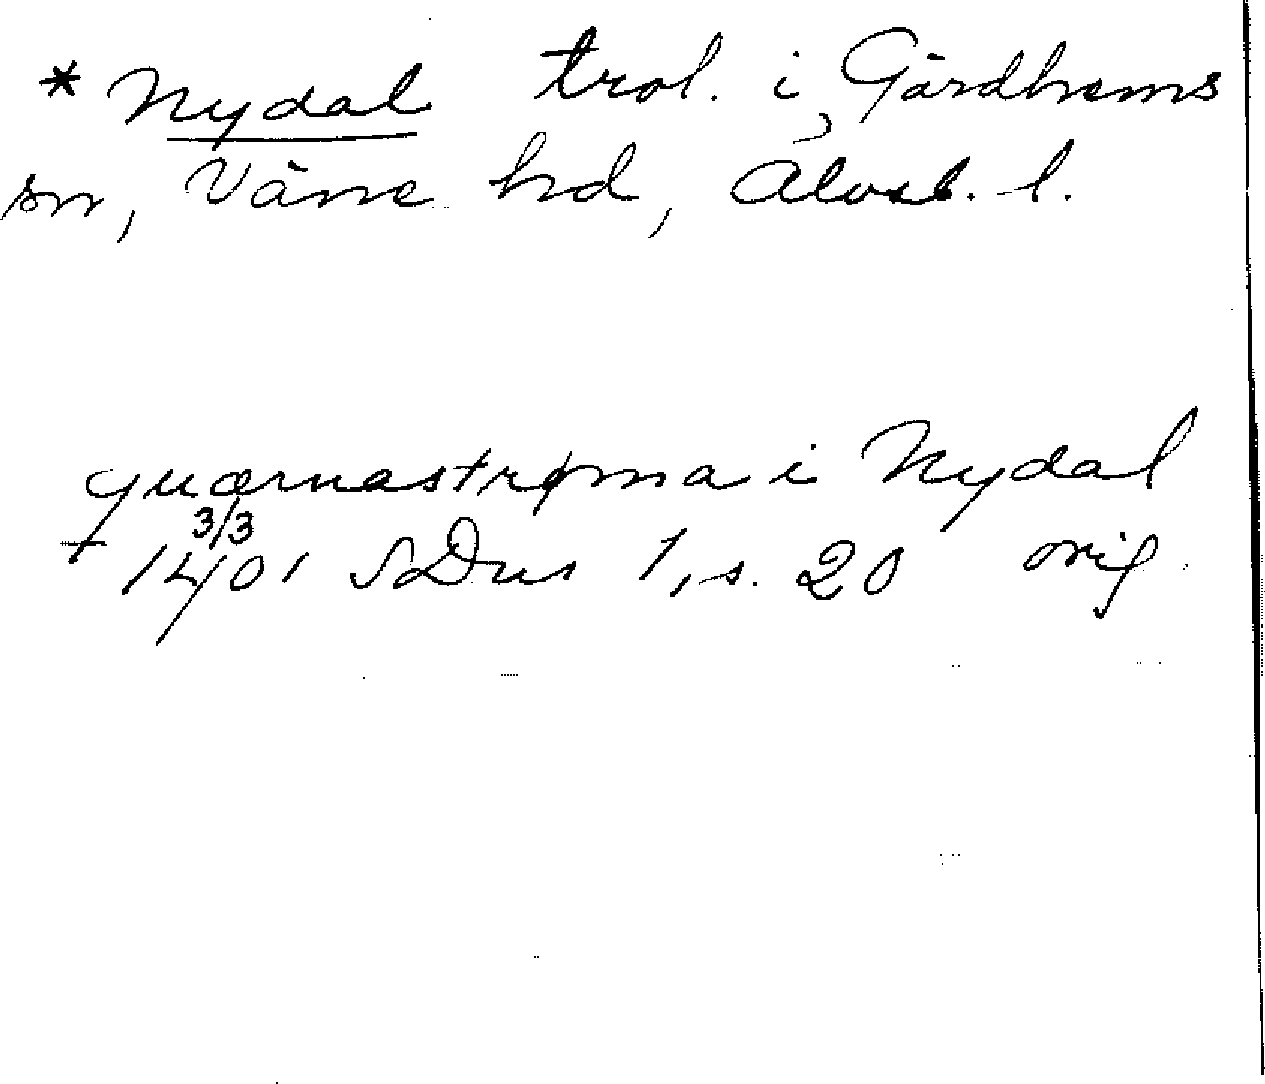 * Nydal trol. i Gärdhems
sn, Väne hd, Älvsb. l.
quærnastrøma i Nydal
3/3
1401 SDns 1, s. 20 orig.